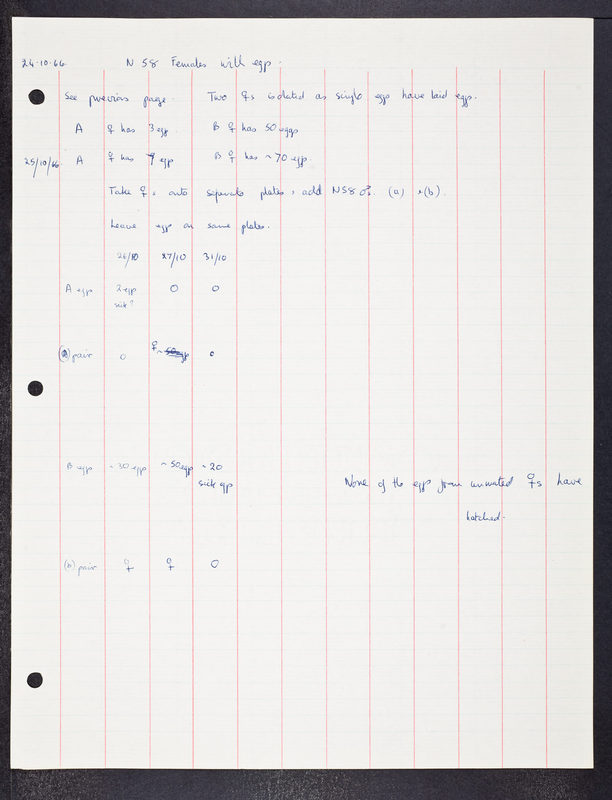 24.10.66 N 58 Females with eggs.
See previous page. Two ♀s isolated as single eggs have laid eggs.
A ♀ has 3 egg B ♀ has 50 eggs
25/10/66 A ♀ has 9 egg B ♀ has ~70 egg.
Take ♀s onto separate plates, add N58 ♂s. (a) + (b).
Leave egg on same plates.
26/10 27/10 31/10
A egg 2 egg 0 0
sick?
(a) pair 0 ♀ 0
B egg ~30 egg ~50 egg ~20
sick egg
None of the eggs from unmated ♀s have
hatched.
(b) pair ♀ ♀ 0